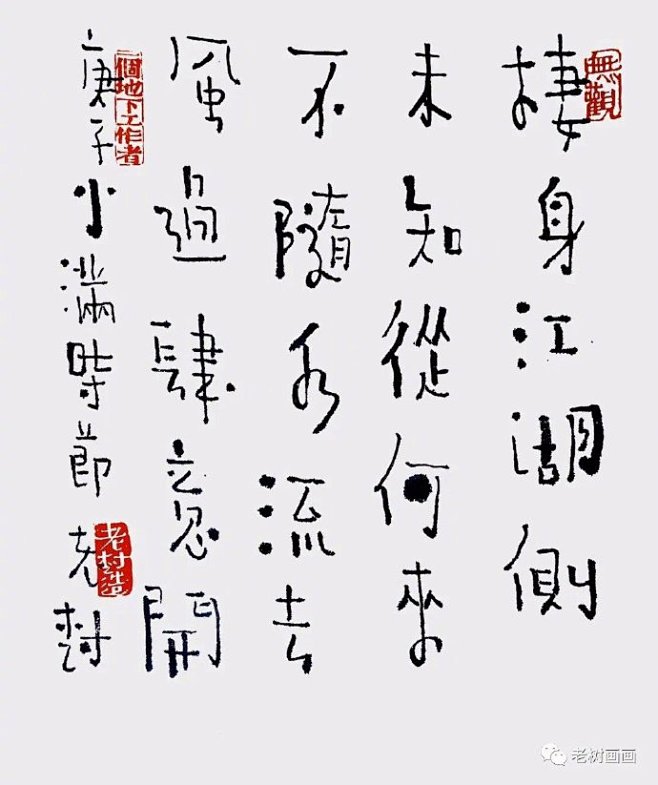 無觀
棲身江湖側
未知從何來
不隨水流去
風過肆意開
庚子小滿時節 老树
一個地下工作者
老树画画